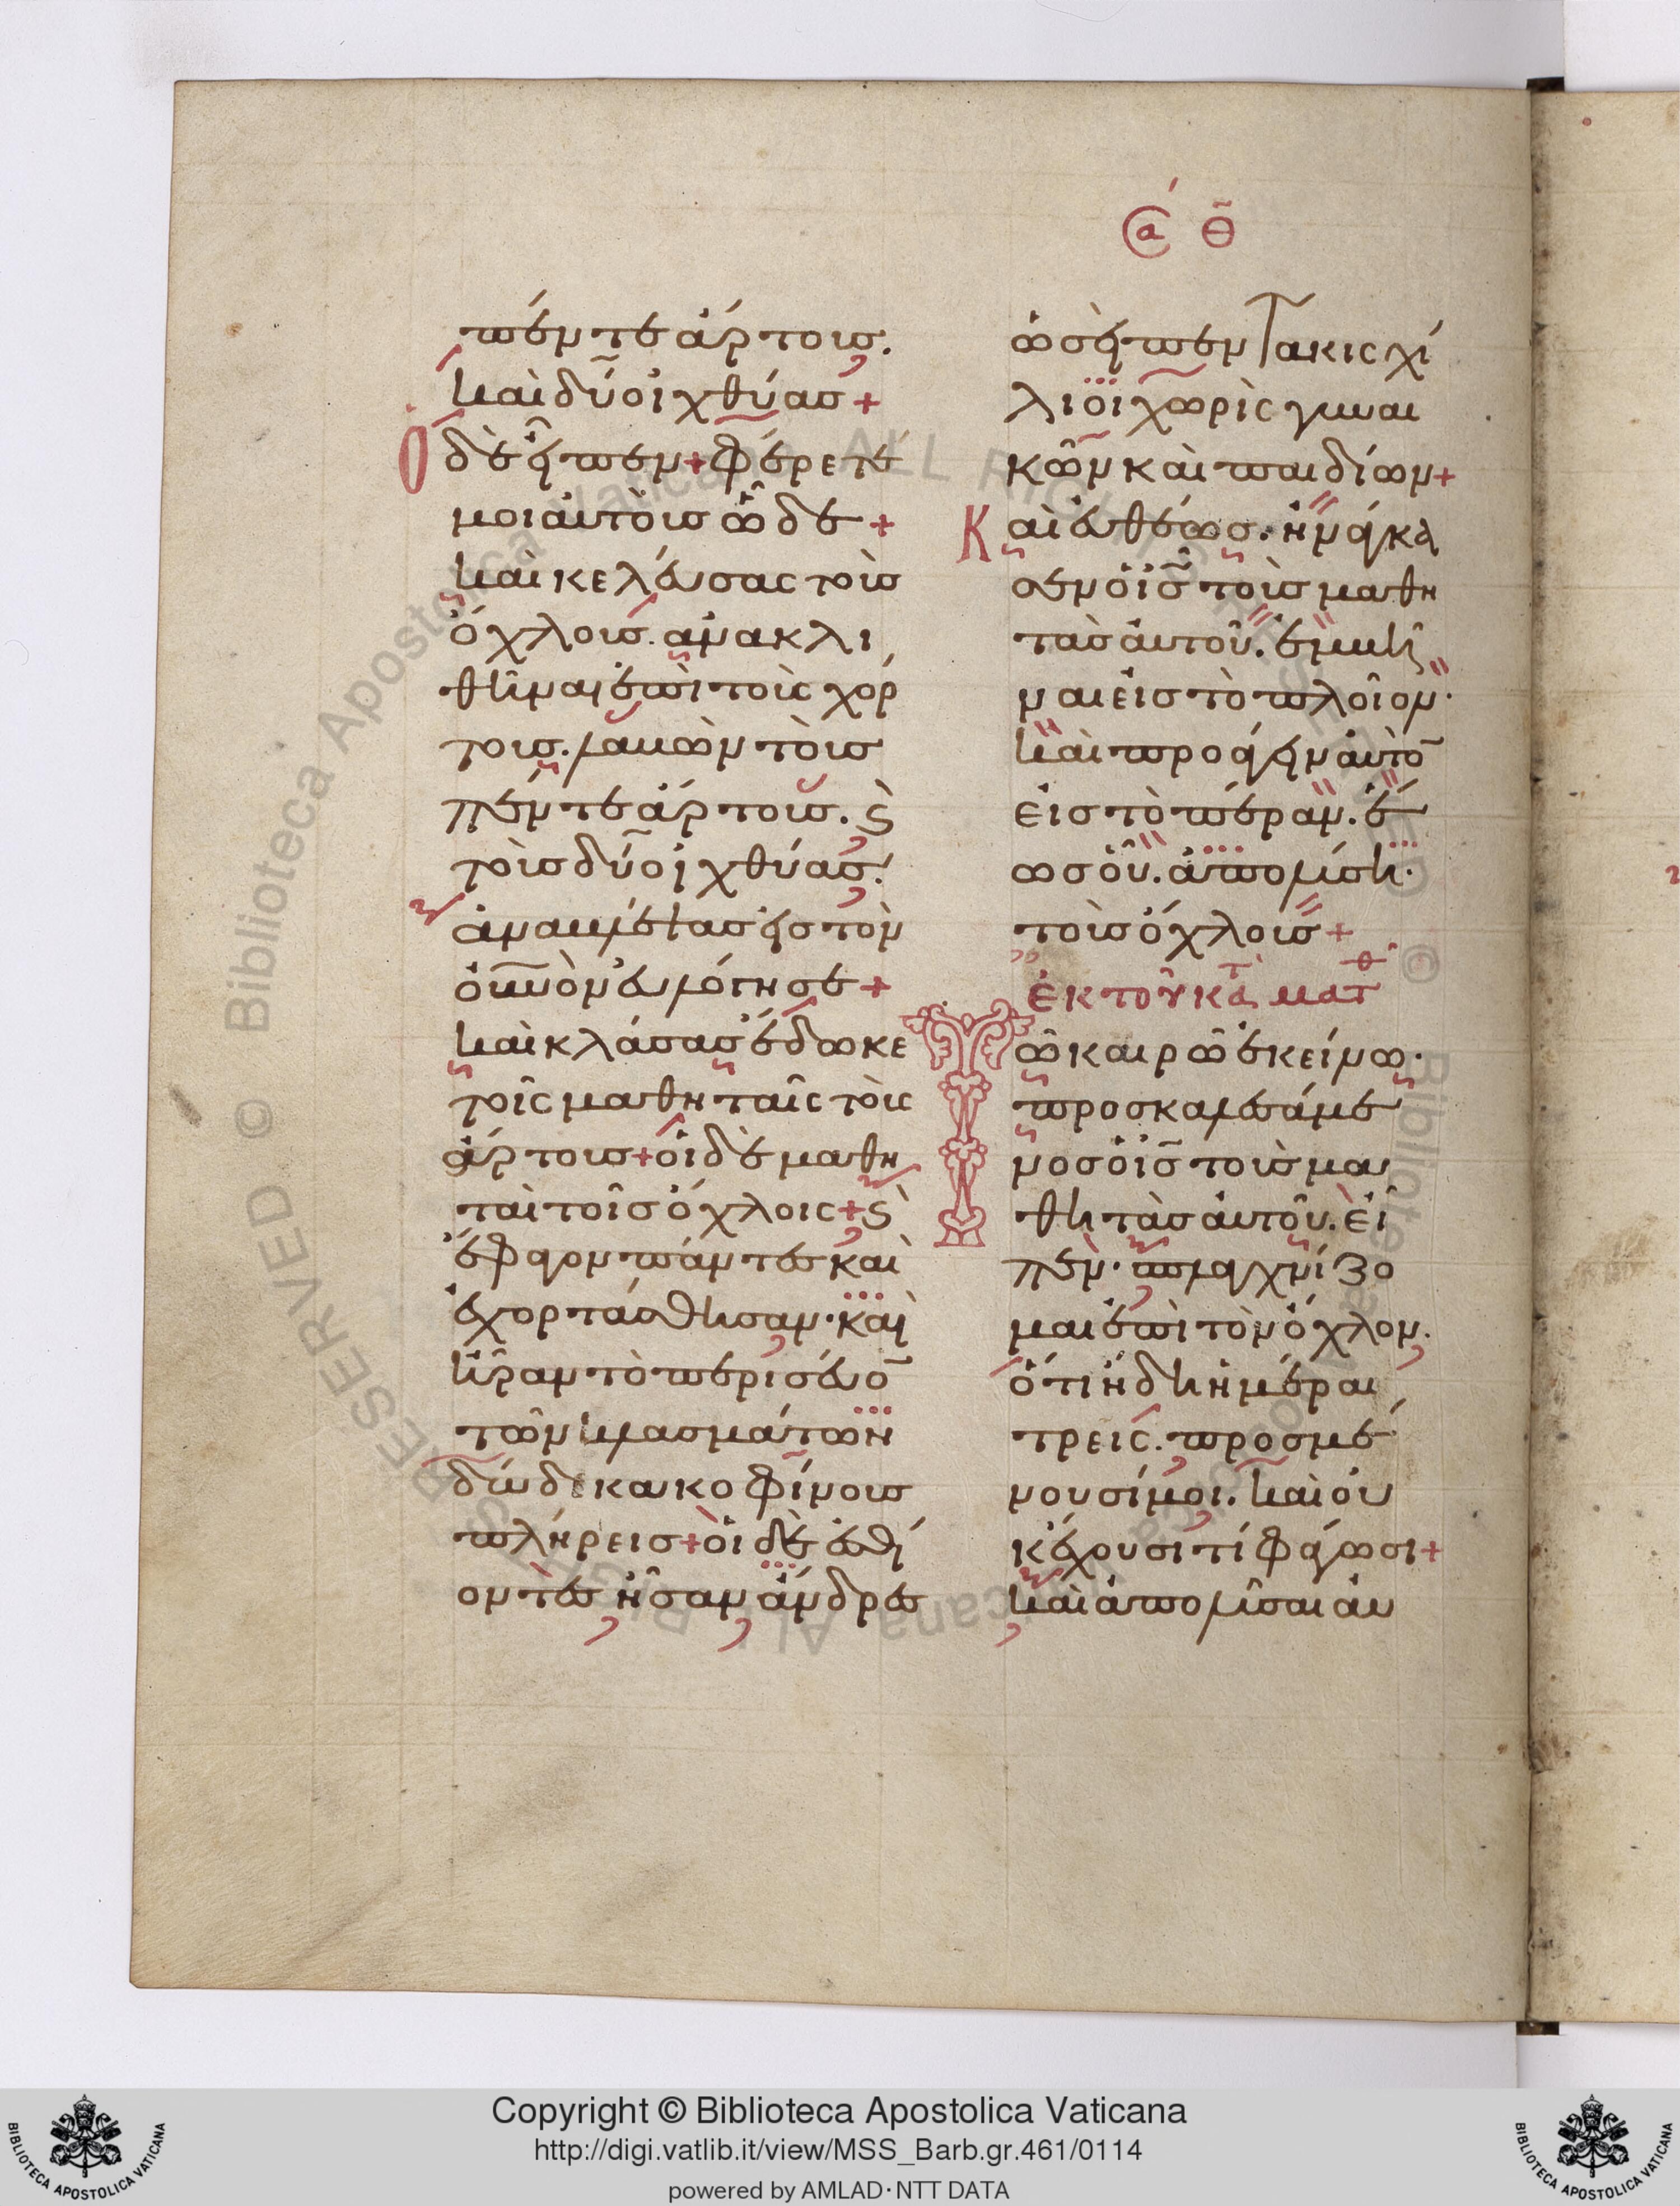 ά Θ
πέντε ἄρτους.
καὶ δύο ἰχθύας +
Ὁ δὲ εἶπεν + φέρετέ
μοι αὐτοὺς ὧδε +
καὶ κελεύσας τοὺς
ὄχλους. ἀνακλι
θῆναι ἐπὶ τοὺς χόρ
τους. λαβὼν τοὺς
πέντε ἄρτους. ϛ̀
τοὺς δύο ἰχθύας.
ἀναβλέψας εἰς τὸν
οὐνὸν εὐλόγησε +
καὶ κλάσας ἔδωκε
τοῖς μαθηταῖς τοὺς
ἄρτους + οἱ δὲ μαθη
ταὶ τοῖς ὄχλοις + ϛ̀
ἔφαγον πάντες καὶ
ἐχορτάσθησαν. καὶ
ἦραν τὸ περισεῦο̄
τῶν κλασμάτων
δώδεκα κοφίνους
πλήρεις + οἱ δὲ ἐσθί
οντες ἦσαν ἄνδρες
ὡσεὶ πεντακισχί
λιοι χωρὶς γυναι
κῶν καὶ παιδίων +
Καὶ εὐθέως. ἠνάγκα
σεν ὁ ις̄ τοὺς μαθη
τὰς αὐτοῦ. ἐμβῆ
ναι εἰς τὸ πλοῖον.
καὶ προάγειν αὐτὸ̄
εἰς τὸ πέραν. ἕ
ως οὗ. ἀπολύσῃ.
τοὺς ὄχλους +
ἐκ τοῦ κατὰ ματθ
Τῷ καιρῷ ἐκείνῳ.
προσκαλεσάμε
νος ὁ ις̄ τοὺς μα
θητὰς αὐτοῦ. εἶ
πεν. σπλαγχνίζο
μαι ἐπὶ τὸν ὄχλον.
ὅτι ἤδη ἡμέραι
τρεῖς. προσμέ
νουσί μοι. καὶ οὐ
κ ἔχουσι τί φάγωσι +
καὶ ἀπολῦσαι αὐ
Copyright © Biblioteca Apostolica Vaticana
http://digi.vatlib.it/view/MSS_Barb.gr.461/0114
powered by AMLAD·NTT DATA